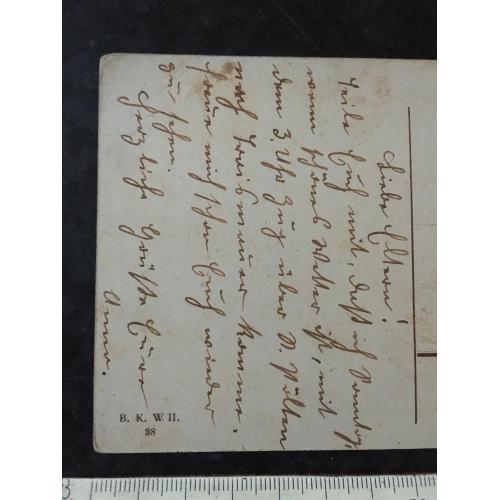 Liebe Eltern!
Teile Euch mit, daß ich Sonntag,
wenn schönes Wetter ist, mit
dem 3 Uhr Zug über St. Pölten
nach Traismauer komme.
Freue mich schon Euch wieder
zu sehen.
Herzliche Grüße Eure
Anna.
B. K. W. II.
38
3